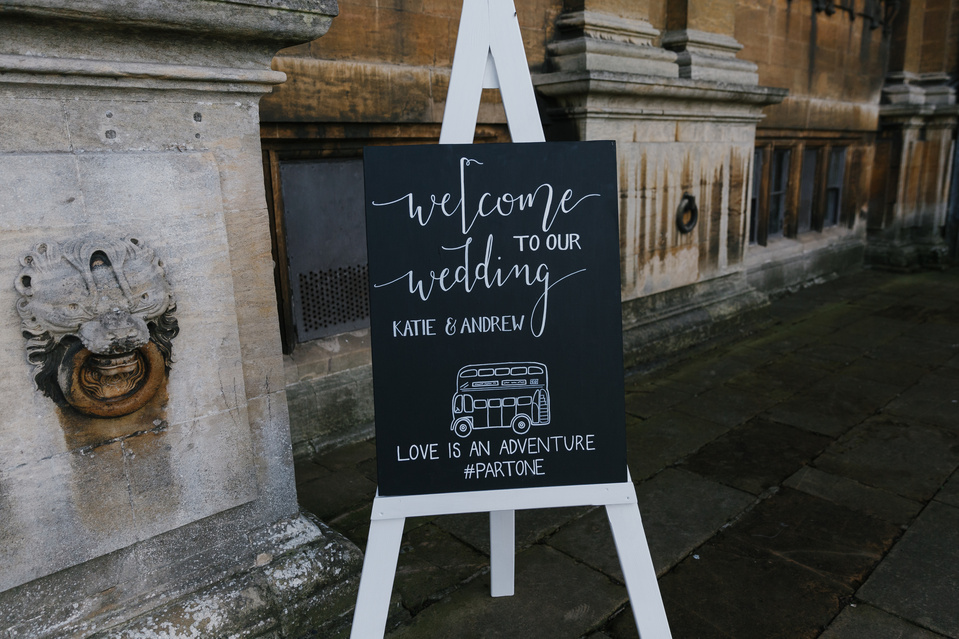 welcome
TO OUR
wedding
KATIE & ANDREW
LOVE IS AN ADVENTURE
#PARTONE